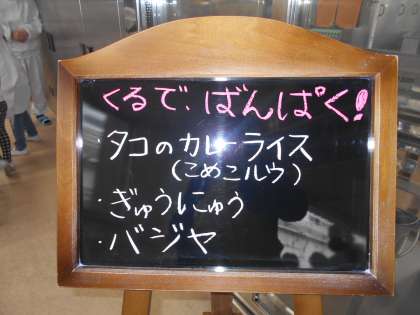 くるで、ばんぱく!
・タコのカレーライス
(こめこルウ)
・ぎゅうにゅう
・バジヤ